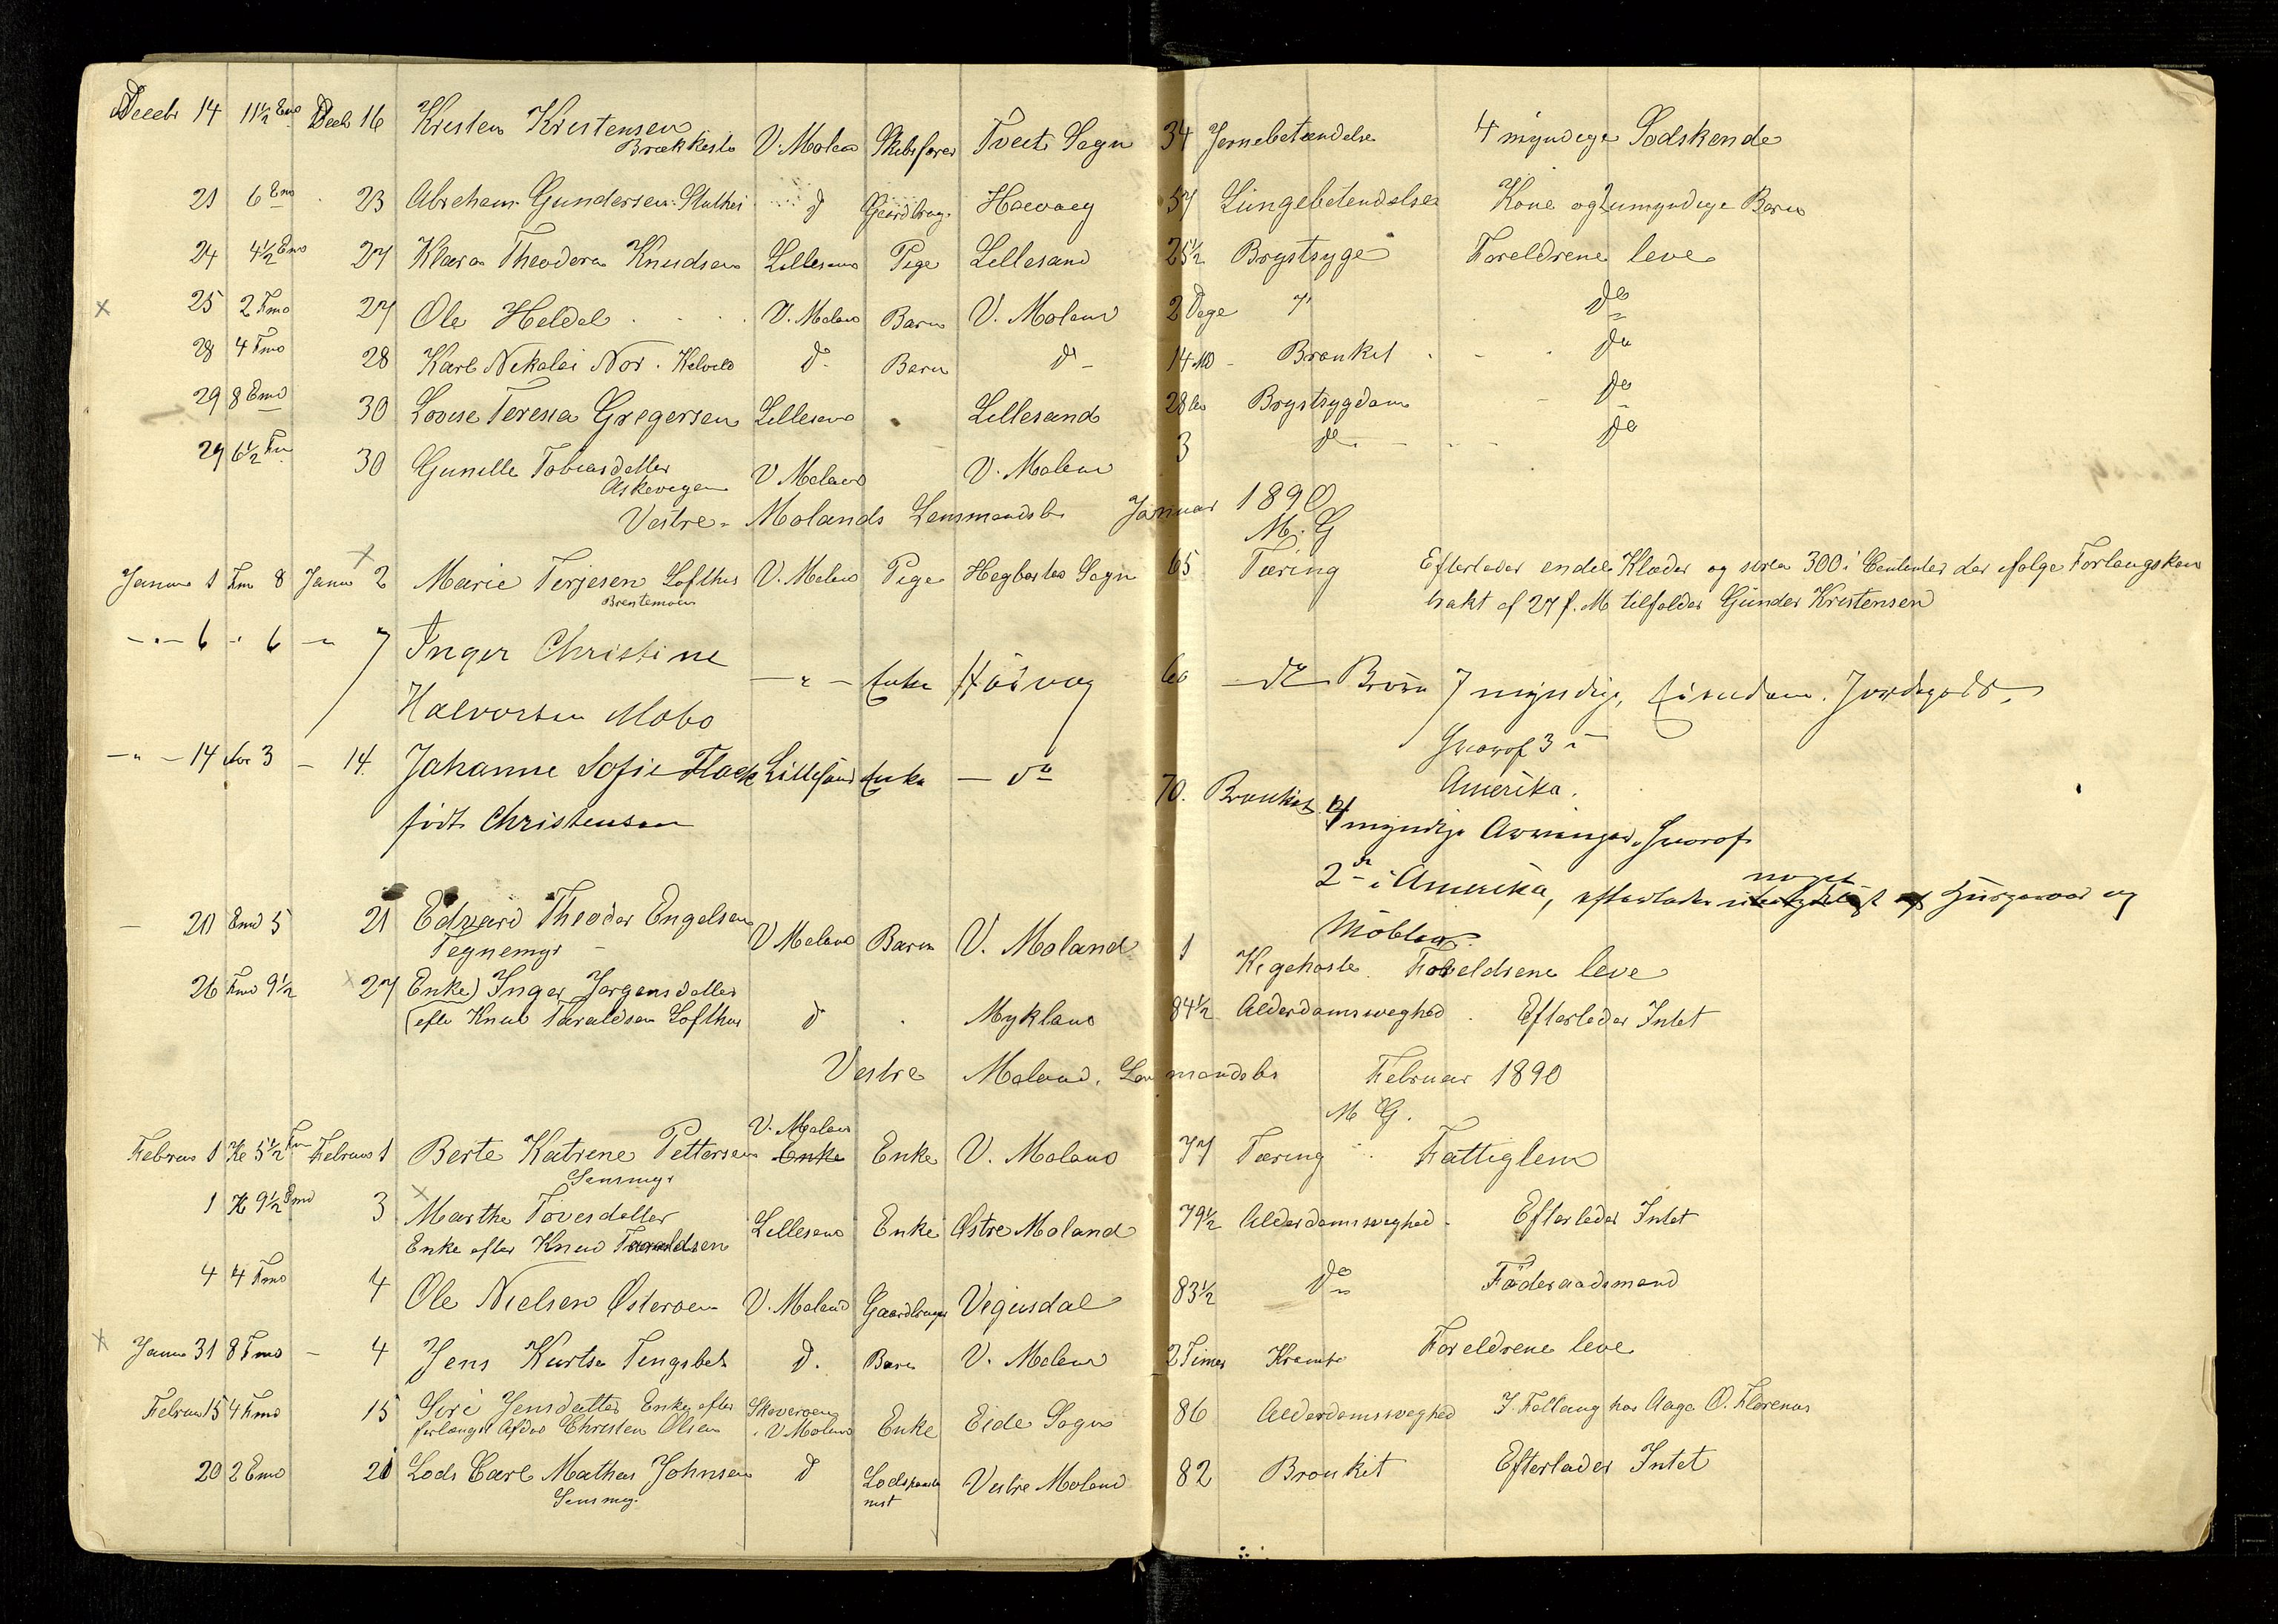 Decebr 14 11½ Emd Decb 16 Kristen Kristensen Brækkestø V. Moland Skibsfører Tveit Sogn 34 Jernebetændelse 4 myndige Sødskende
21 6 Emd 23 Abraham Gundersen Stuthei d Gaardbrug. Høevaag 57 Lungebetændelse Kone og 2 umyndige Barn
24 4½ Emd 27 Klara Theodora Knudsen Lillesand Pige Lillesand 25½ Brystsyge Foreldrene leve
x 25 2 Fmd 27 Ole Heldal V. Moland Barn V. Moland 2 Dage " do
28 4 Fmd 28 Karl Nikolai Nor. Kalvild do Barn do 14 Md Bronkit do
29 8 Emd 30 Lovise Teresia Gregersen Lillesand Lillesand 28 Brystsygdom do
29 6½ Fm 30 Gunille Tobiasdatter Askevigen V Moland V. Moland 3 do do
Vestre Molands Lensmandsb. Januar 1890
M. G
Januar 1 Fm 8 Januar x 2 Marie Terjesen Lofthus V. Moland Pige Hegbostad Sogn 65 Tæring Efterlader endel Klæder og cirka 300 i Contanter der ifølge Forlangskon
Brentemoen trakt af 27 f. M tilfalder Gunder Kristensen
- " - 6 - " 6 - " 7 Inger Christine
Halvorsen Møbo - " - Enke Høivaag 60 do Børn 7 myndige, Eiendom. Jordegods,
hvoraf 3 i
Amerika.
- " - 14 3 - 14. Johanne Sofie Flack Lillesand Enke - do 70. Bronkit 4 myndige Arvinger, hvoraf
født Christensen
2 i Amerika, efterlader noget Husgeraad og
Møbler.
- 20 Emd 5 21 Edvard Theodor Engelsen
Tegnemyr V Moland Barn V. Moland 1 Kigehoste Foreldrene leve
26 Fmd 9½ x 27 Enke) Inger Jørgensdatter
(efter Knud Taraldsen Lofthus do Mykland 84½ Alderdomsvaghed Efterlader Intet
Vestre Moland. Lensmandsb. Februar 1890
M G.
Februar 1 Kl 5½ Fm Februar 1 Berte Katrine Pettersen V. Moland Enke Enke V. Moland 77 Tæring Fattiglem
Sensmyr
1 Kl 9½ Emd 3 x Marthe Tovesdatter
Enke efter Knud Taraldsen Lillesand Enke Østre Moland 79½ Alderdomsvaghed Efterlader Intet
4 4 Fmd 4 Ole Nielsen Østerøen V. Moland Gaardbruger Vegusdal 83½ do Føderaadsmand
x Januar 31 8 Fmd - 4 Jens Kurtsa Tingsbek d. Barn V. Moland 2 Timer Krampe Foreldrene leve
Februar 15 4 Fmd 15 Siri Jensdatter Enke efter Skoverøen
forlængst Afdød Christen Olsen i V Moland Enke Eide Sogn 86 Alderdomsvaghed Aage O. Florenæs
20 2 Emd 21 Lods Carl Mathias Johnsen do Vestre Moland 82 Bronkit Efterlader Intet
Sensmyr